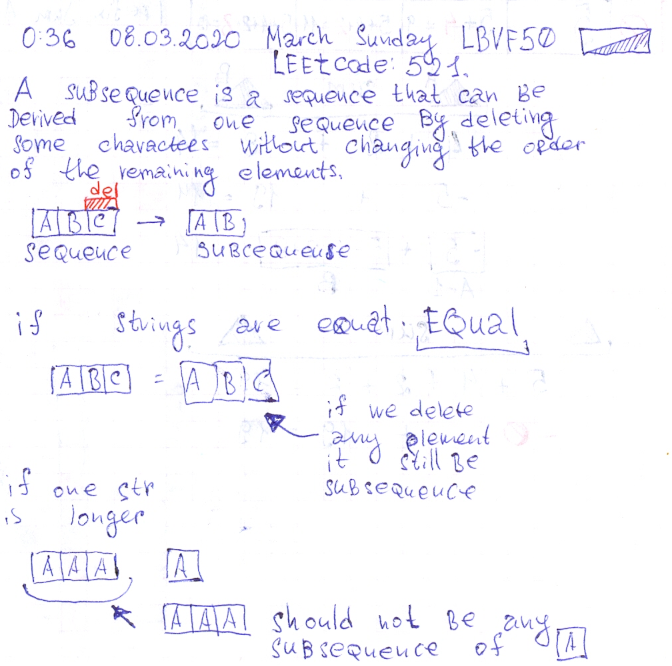 0:36 08.03.2020 March Sunday LBVF50
LEEtcode: 521.
A subsequence is a sequence that can be
Derived from one sequence By deleting
some charactees without changing the order
of the remaining elements.
del
A B C → A B
sequence subcequeuse
if strings are equat. EQual
A B C = A B C
if we delete
any element
it still Be
subsequence
if one str
is longer
A A A A
A A A should not Be any
subsequence of A